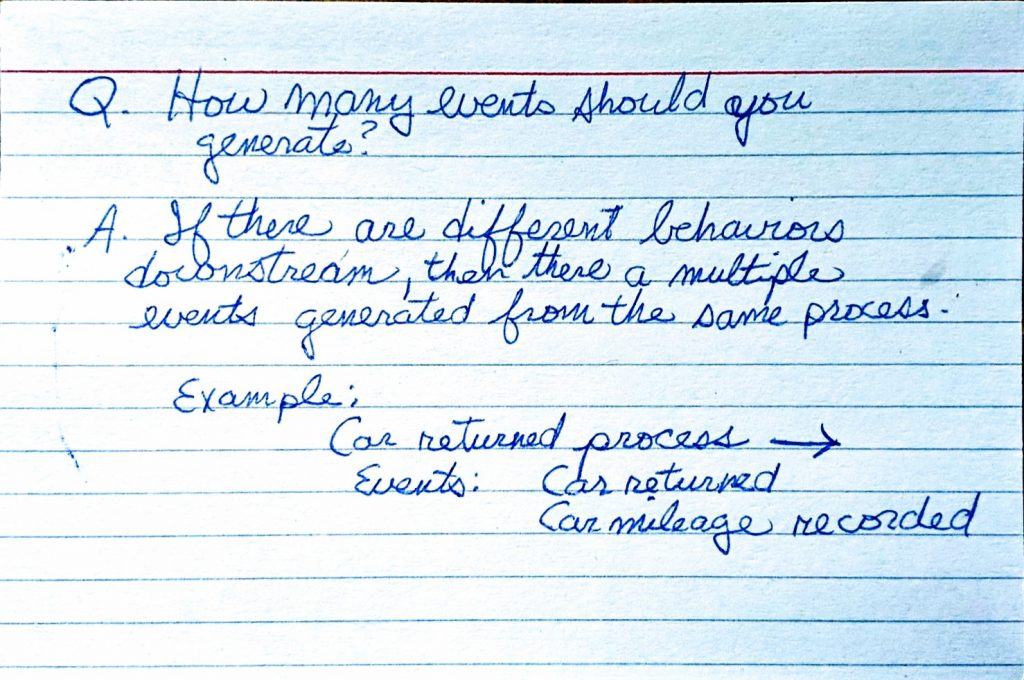 Q. How many events should you
generate?
A. If there are different behaviors
downstream, then there a multiple
events generated from the same process.
Example:
Car returned process →
Events: Car returned
Car mileage recorded